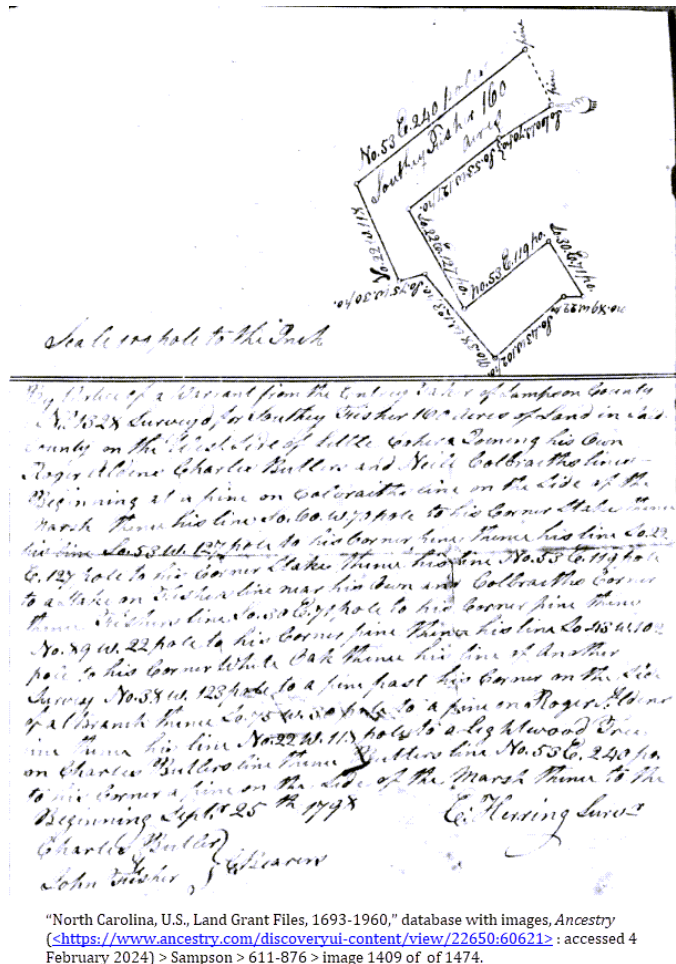 pine
No. 53 E. 240 poles
Southey Fisher 160
acres
pine
So. 60 W. 70 po.
So. 53 W. 127 po.
No. 22 W. 118
So. 22 E. 127 po.
no. 53 E. 119 po.
So. 30 E. 71 po.
So. 75 W. 30 po.
No. 38 W. 123 po.
no. 89 W. 22 po.
So. 43 W. 102 po.
Scale 100 pole to the Inch
By Virtue of a Warrant from the Entry Taker of Sampson County
No. 1328 Surveyd. for Southey Fisher 160 Acres of Land in said
County on the West Side of Little Cohera Joining his Own
Roger Aldens Charles Butlers and Neill Colbraiths lines
Beginning at a pine on Colbraiths line on the Side of the
Marsh thence his line So. 60. W. 70 pole to his Corner Stake thence
his line So. 53 W. 127 pole to his Corner pine thence his line So. 22
E. 127 pole to his Corner Stake thence his line No. 53 E. 119 pole
to a Stake on Fishers line near his Own and Colbraiths Corner
thence Fishers line So. 30 E. 71 pole to his Corner pine thence
No. 89 W. 22 pole to his Corner pine thence his line So. 43 W. 102
pole to his Corner White Oak thence his line of Another
Survey No. 38 W. 123 pole to a pine past his Corner on the Side
of a Branch thence So. 75 W. 30 pole to a pine on Roger Aldens
line thence his line No. 22 W. 118 pole to a Lightwood Tree
on Charles Butlers line thence Butlers line No. 53 E. 240 po.
to his Corner a pine on the Side of the Marsh thence to the
Beginning Sept. 25th 1798
E. Herring Survr
Charles Butler
John Fisher } C Bearers
“North Carolina, U.S., Land Grant Files, 1693-1960,” database with images, Ancestry
(<https://www.ancestry.com/discoveryui-content/view/22650:60621> : accessed 4
February 2024) > Sampson > 611-876 > image 1409 of of 1474.